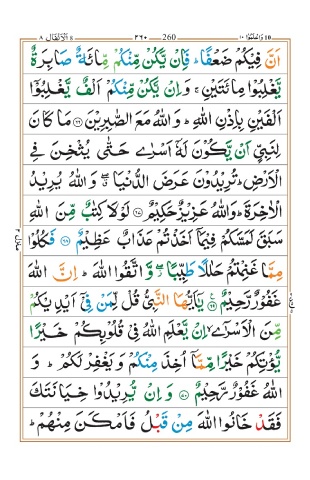 واعلموا ١٠ 260 ٢٦٠ الانفال ٨
اَنَّ فِيۡكُمۡ ضَعۡفًا‌ؕ فَاِنۡ يَّكُنۡ مِّنۡكُمۡ مِّائَةٌ صَابِرَةٌ
يَّغۡلِبُوۡا مِائَتَيۡنِ‌ۚ وَاِنۡ يَّكُنۡ مِّنۡكُمۡ اَلۡفٌ يَّغۡلِبُوۡۤا
اَلۡفَيۡنِ بِاِذۡنِ اللّٰهِؕ وَاللّٰهُ مَعَ الصّٰبِرِيۡنَ‏ ﴿٦٦﴾ مَا كَانَ
لِنَبِىٍّ اَنۡ يَّكُوۡنَ لَهٗۤ اَسۡرٰى حَتّٰى يُثۡخِنَ فِى
الۡاَرۡضِ‌ؕ تُرِيۡدُوۡنَ عَرَضَ الدُّنۡيَا ‌ۖ وَاللّٰهُ يُرِيۡدُ
الۡاٰخِرَةَ‌ ؕ وَاللّٰهُ عَزِيۡزٌ حَكِيۡمٌ‏ ﴿٦٧﴾ لَوۡلَا كِتٰبٌ مِّنَ اللّٰهِ
سَبَقَ لَمَسَّكُمۡ فِيۡمَاۤ اَخَذۡتُمۡ عَذَابٌ عَظِيۡمٌ‏ ﴿٦٨﴾ فَكُلُوۡا
مِمَّا غَنِمۡتُمۡ حَلٰلاً طَيِّبًا‌ ۖ وَّاتَّقُوا اللّٰهَ‌ ؕ اِنَّ اللّٰهَ
غَفُوۡرٌ رَّحِيۡمٌ‏ ﴿٦٩﴾ يٰۤاَيُّهَا النَّبِىُّ قُلْ لِّمَنۡ فِىۡۤ اَيۡدِيۡكُمۡ
مِّنَ الۡاَسۡرٰٓىۙ اِنۡ يَّعۡلَمِ اللّٰهُ فِىۡ قُلُوۡبِكُمۡ خَيۡرًا
يُّؤۡتِكُمۡ خَيۡرًا مِّمَّاۤ اُخِذَ مِنۡكُمۡ وَيَغۡفِرۡ لَـكُمۡ‌ؕ وَ
اللّٰهُ غَفُوۡرٌ رَّحِيۡمٌ‏ ﴿٧٠﴾ وَاِنۡ يُّرِيۡدُوۡا خِيَانَـتَكَ
فَقَدۡ خَانُوا اللّٰهَ مِنۡ قَبۡلُ فَاَمۡكَنَ مِنۡهُمۡ‌ؕ